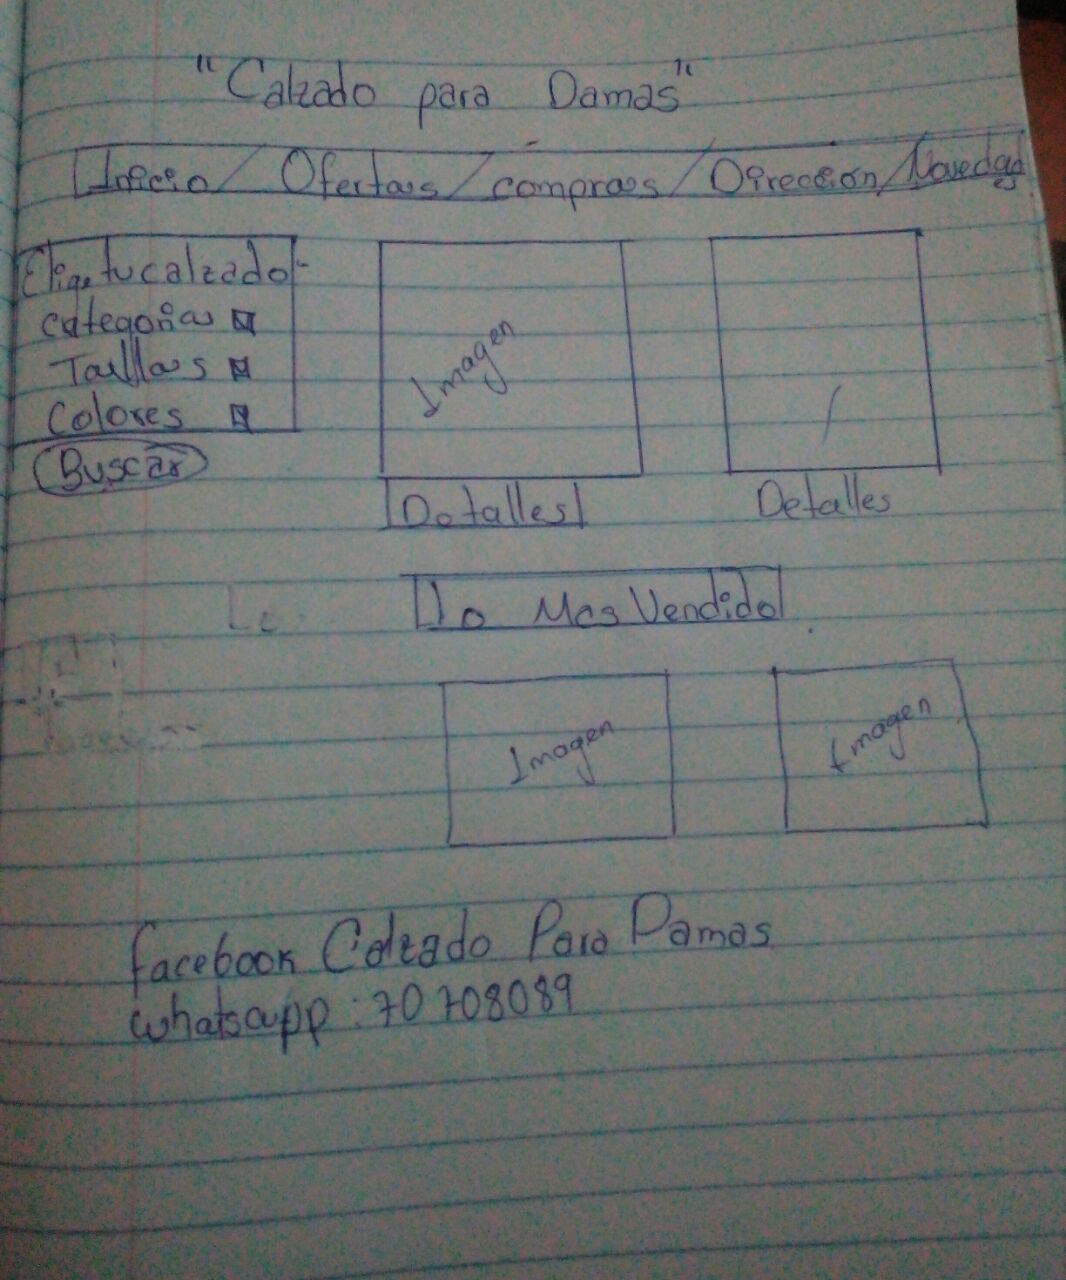 "Calzado para Damas"
Inicio / Ofertas / compras / Dirección / Novedades
Elige tu calzado
categorias
Tallas
Colores
Buscar
Imagen
Detalles
Detalles
Lo Mas Vendido
Imagen
Imagen
facebook Calzado Para Damas
whatsapp: 70708089